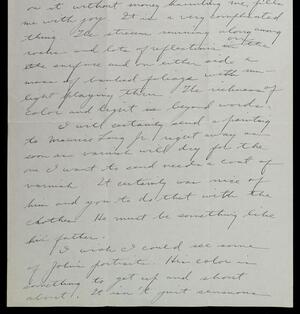 on it without money haunting me, fills
me with joy. It is a very complicated
thing. The stream running along among
rocks and lots of reflections on the
surface and on either side a
mass of banked foliage with sun-
light playing thru. The richness of
color and light is beyond words.
I will certainly send a painting
to Maurice Long Jr. right away as
soon as varnish will dry for the
one I want to send needs a coat of
varnish. It certainly was nice of
him and you to do that with the
clothes. He must be something like
his father.
I wish I could see some
of John's portraits. His color is
something to get up and shout
about. It isn't just sensuous